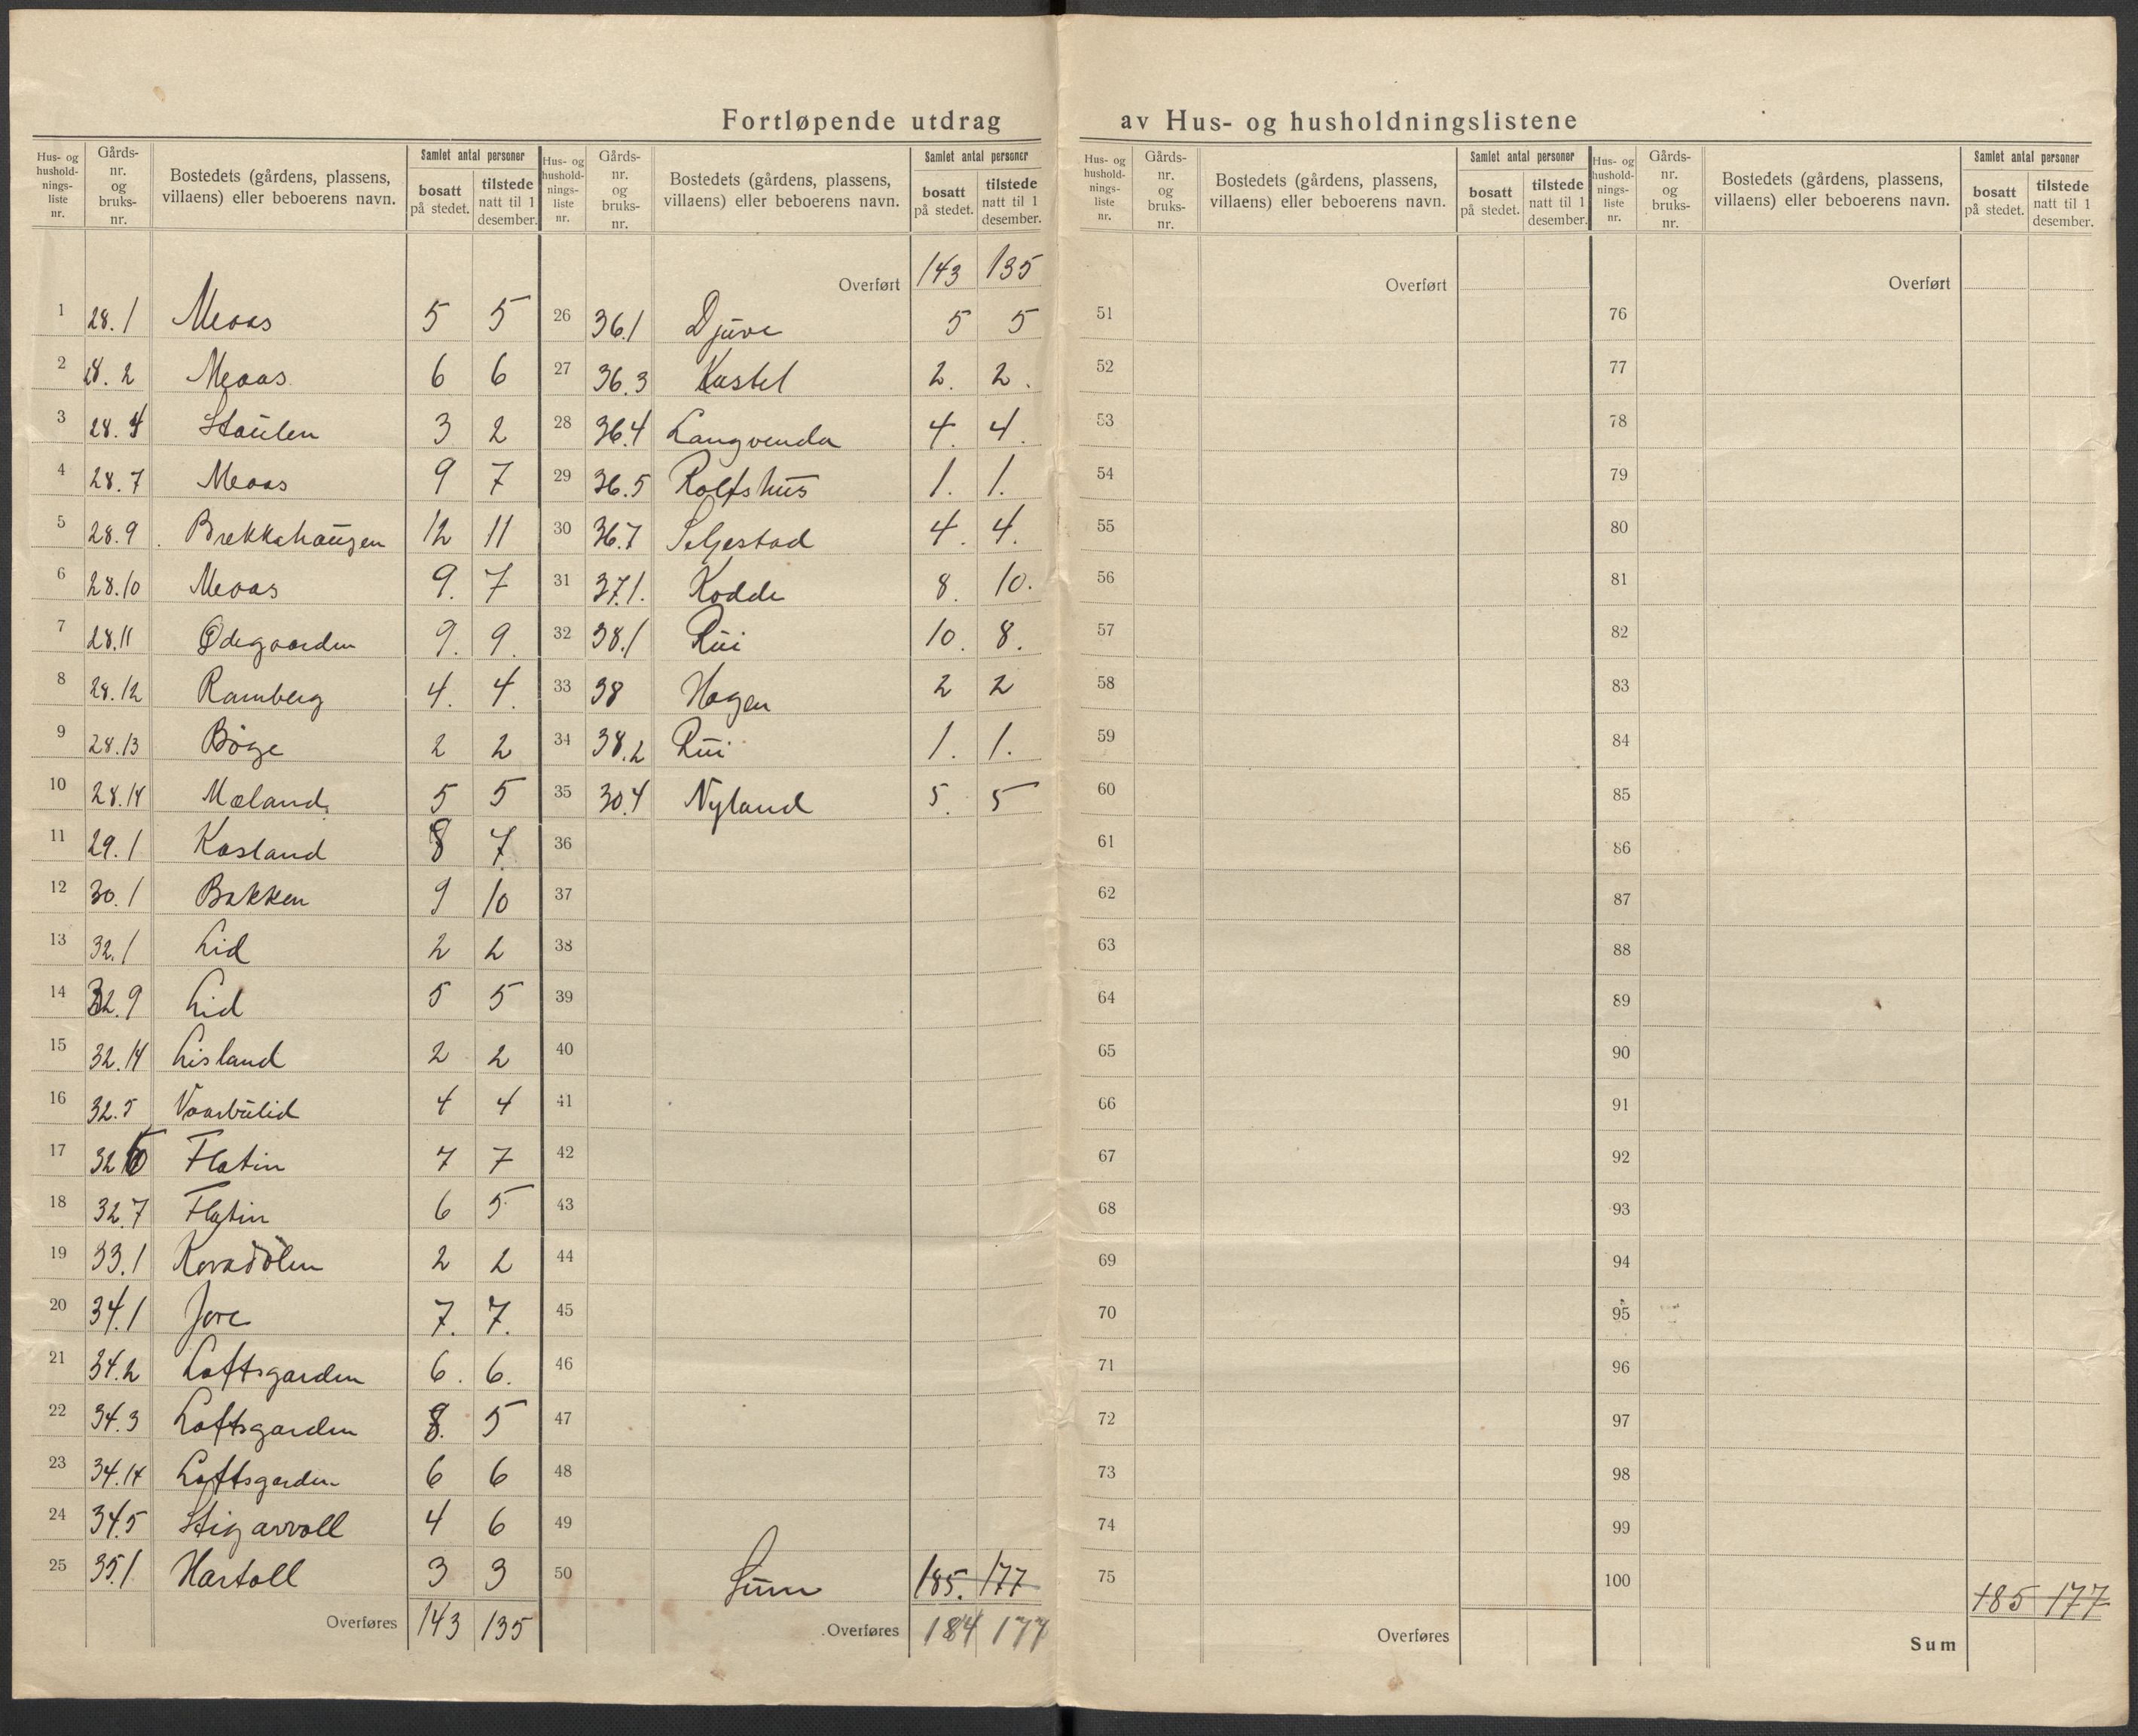 Fortløpende utdrag av Hus- og husholdningslistene
Hus- og hushold- nings- liste nr. | Gårds- nr. og bruks- nr. | Bostedets (gårdens, plassens, villaens) eller beboerens navn. | Samlet antal personer bosatt på stedet. | tilstede natt til 1 desember.
1 28.1 Meaas 5 5
2 28.2 Meaas 6 6
3 28.4 Staulen 3 2
4 28.7 Meaas 9 7
5 28.9 Brekkehaugen 12 11
6 28.10 Meaas 9. 7
7 28.11 Ødegaarden 9. 9.
8 28.12 Ramberg 4. 4.
9 28.13 Bøge 2 2
10 28.14 Mæland 5 5
11 29.1 Kasland 8 7
12 30.1 Bakken 9 10
13 32.1 Lid 2 2
14 32.9 Lid 5 5
15 32.14 Lisland 2 2
16 32.5 Vaarbulid 4 4
17 32 Flatin 7 7
18 32.7 Flatin 6 5
19 33.1 2 2
20 34.1 Jore 7. 7.
21 34.2 Loftsgarden 6. 6.
22 34.3 Loftsgarden 8. 5
23 34.14 Loftsgarden 6 6
24 34.5 Stigarvoll 4 6
25 35.1 Hartoll 3 3
Overføres 143 135
Hus- og hushold- nings- liste nr. | Gårds- nr. og bruks- nr. | Bostedets (gårdens, plassens, villaens) eller beboerens navn. | Samlet antal personer bosatt på stedet. | tilstede natt til 1 desember.
Overført 143 135
26 36.1 Djuve 5 5
27 36.3 Kastel 2. 2.
28 36.4 Langvenda 4. 4.
29 36.5 Rolfshus 1. 1.
30 36.7 Seljestad 4. 4.
31 37.1. Kodde 8. 10.
32 38.1 Rui 10. 8.
33 38 Hagen 2 2
34 38.2 Rui 1. 1.
35 30.4 Nyland 5. 5
36
37
38
39
40
41
42
43
44
45
46
47
48
49
50 Sum 185. 177
Overføres 184 177
Hus- og hushold- nings- liste nr. | Gårds- nr. og bruks- nr. | Bostedets (gårdens, plassens, villaens) eller beboerens navn. | Samlet antal personer bosatt på stedet. | tilstede natt til 1 desember.
Overført
51
52
53
54
55
56
57
58
59
60
61
62
63
64
65
66
67
68
69
70
71
72
73
74
75
Overføres
Hus- og hushold- nings- liste nr. | Gårds- nr. og bruks- nr. | Bostedets (gårdens, plassens, villaens) eller beboerens navn. | Samlet antal personer bosatt på stedet. | tilstede natt til 1 desember.
Overført
76
77
78
79
80
81
82
83
84
85
86
87
88
89
90
91
92
93
94
95
96
97
98
99
100
185 177
Sum